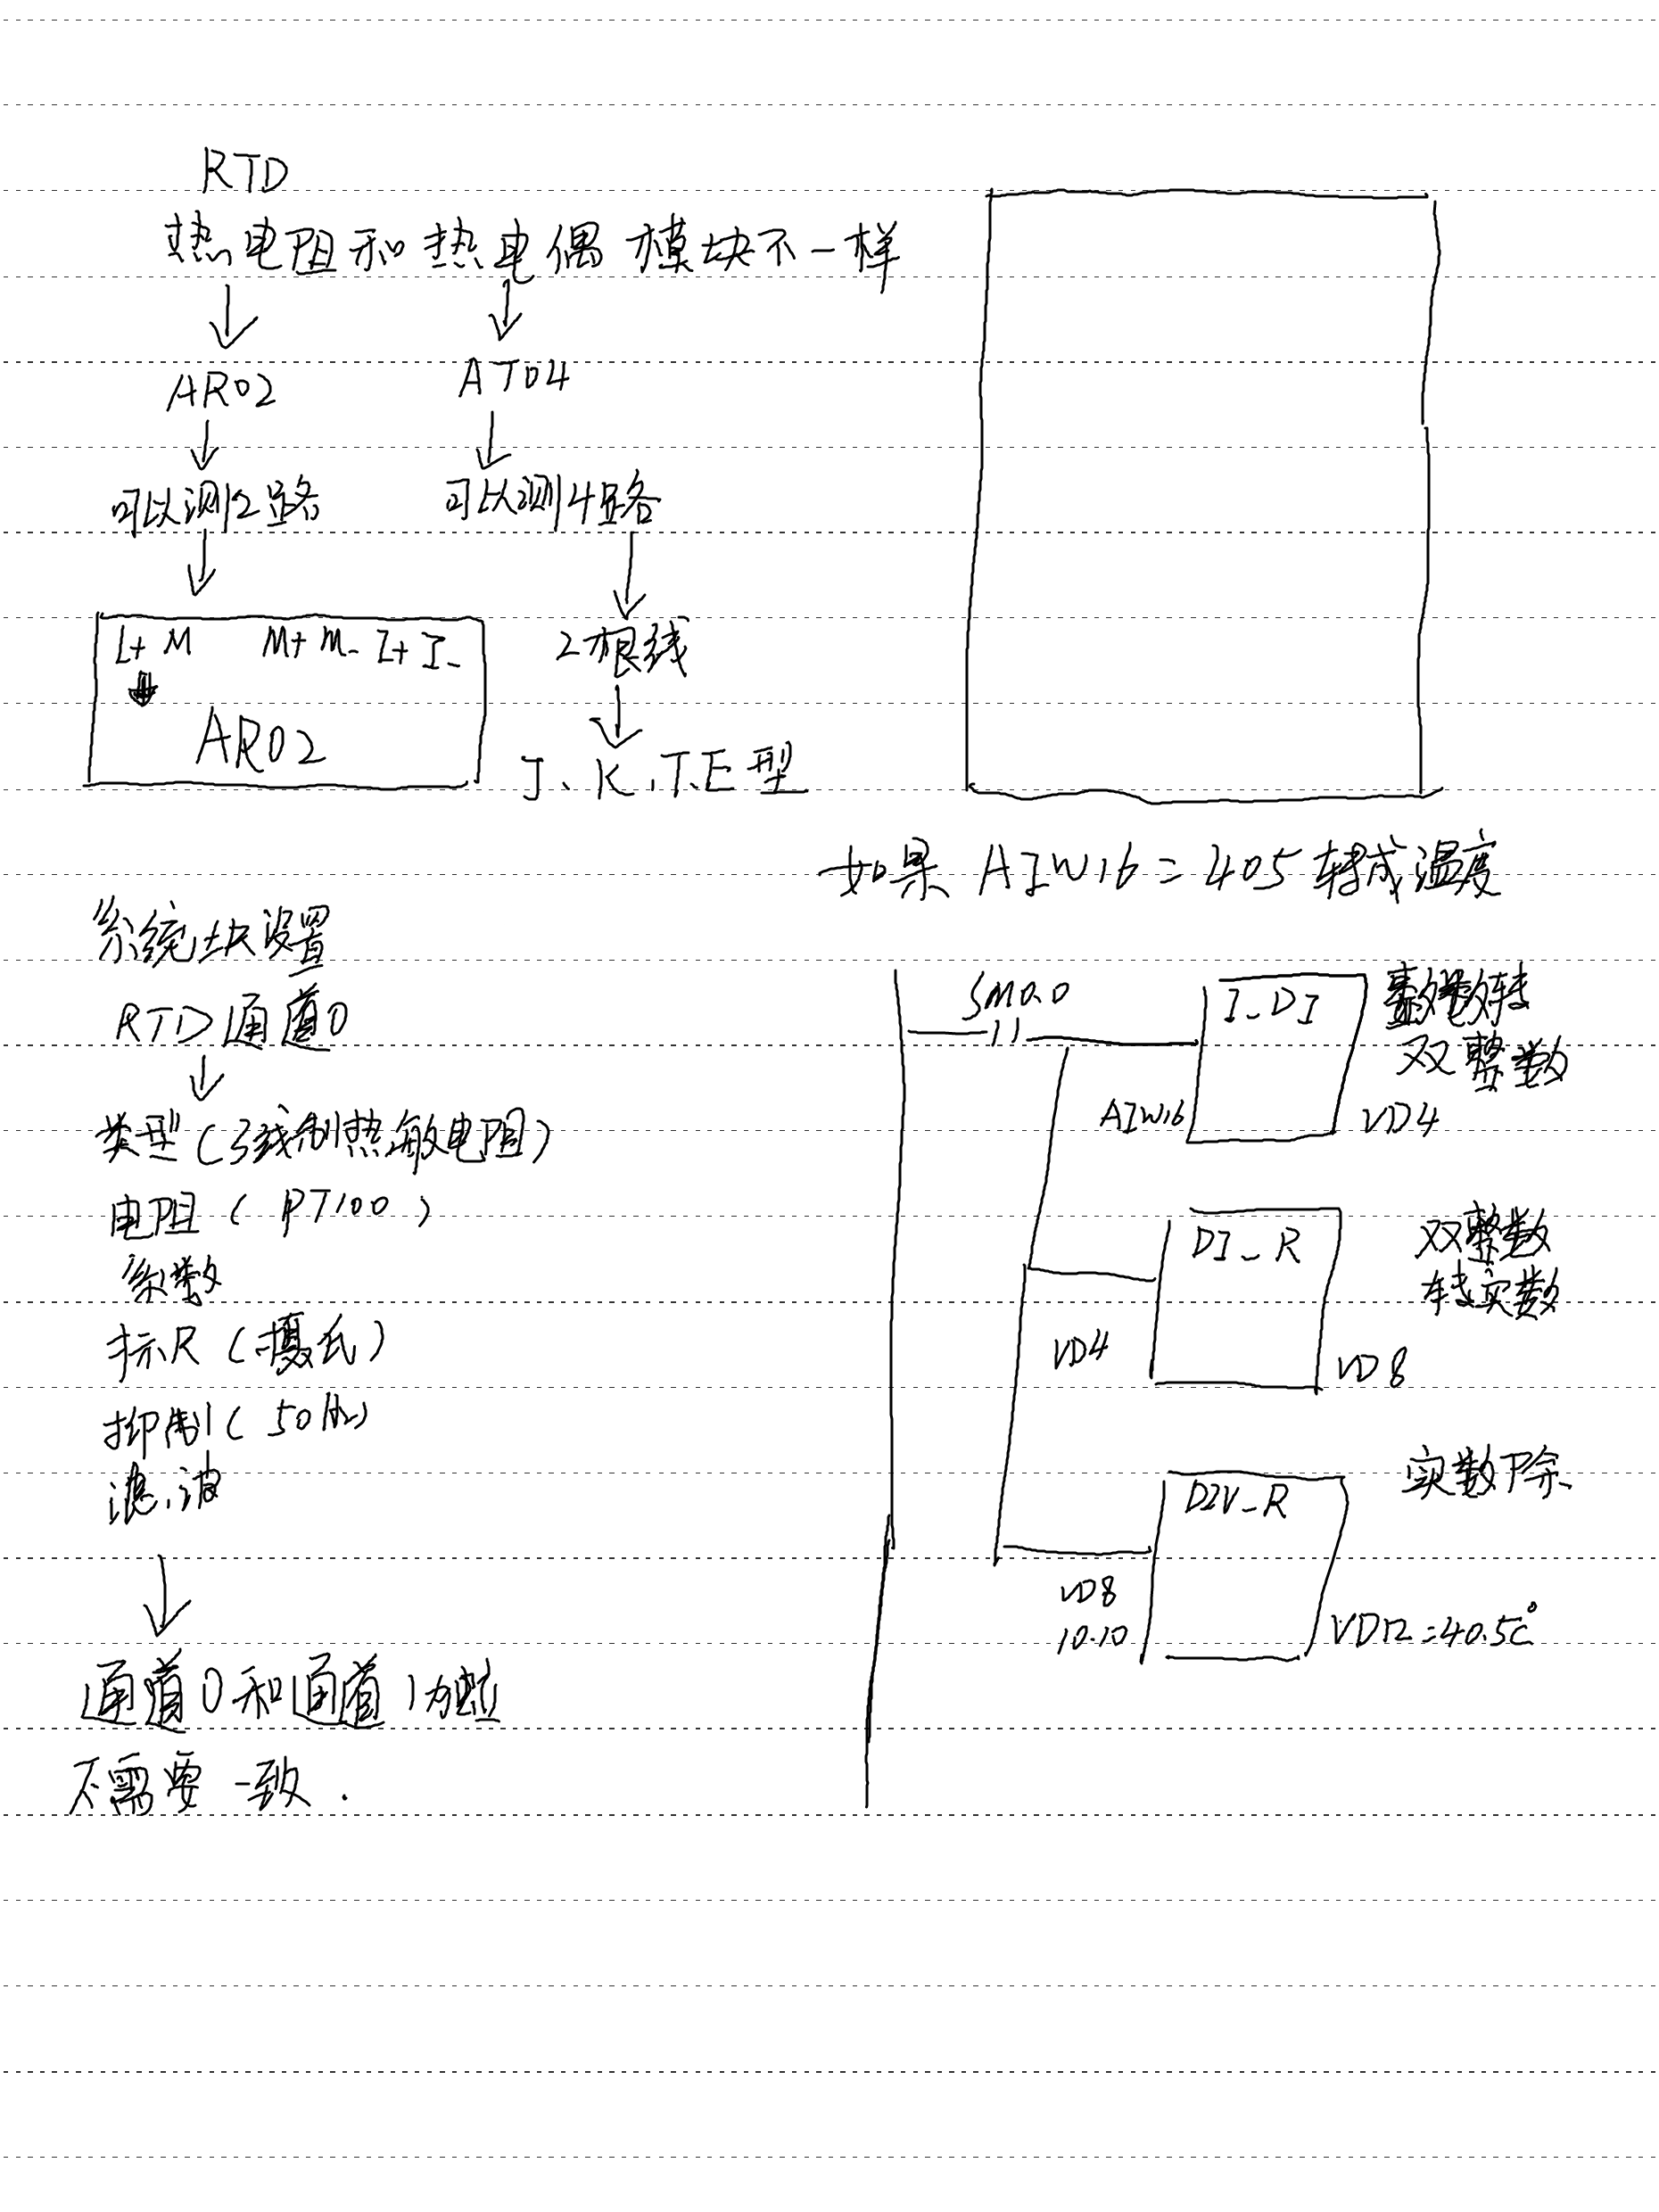 RTD
热电阻和热电偶 模块不一样
AR02
AT04
可以测2路
可以测4路
L+ M M+ M- I+ I-
AR02
2根线
J、K、T、E型
系统块设置
RTD通道0
类型(3线制热敏电阻)
电阻(PT100)
系数
标尺(摄氏)
抑制(50Hz)
滤波
通道0和通道1
不需要一致.
如果 AIW16=405 转成温度
SM0.0
I_DI
双整数
AIW16
VD4
DI_R
双整数
转实数
VD4
VD8
实数除
DIV_R
VD8
10.10
VD12=40.5℃